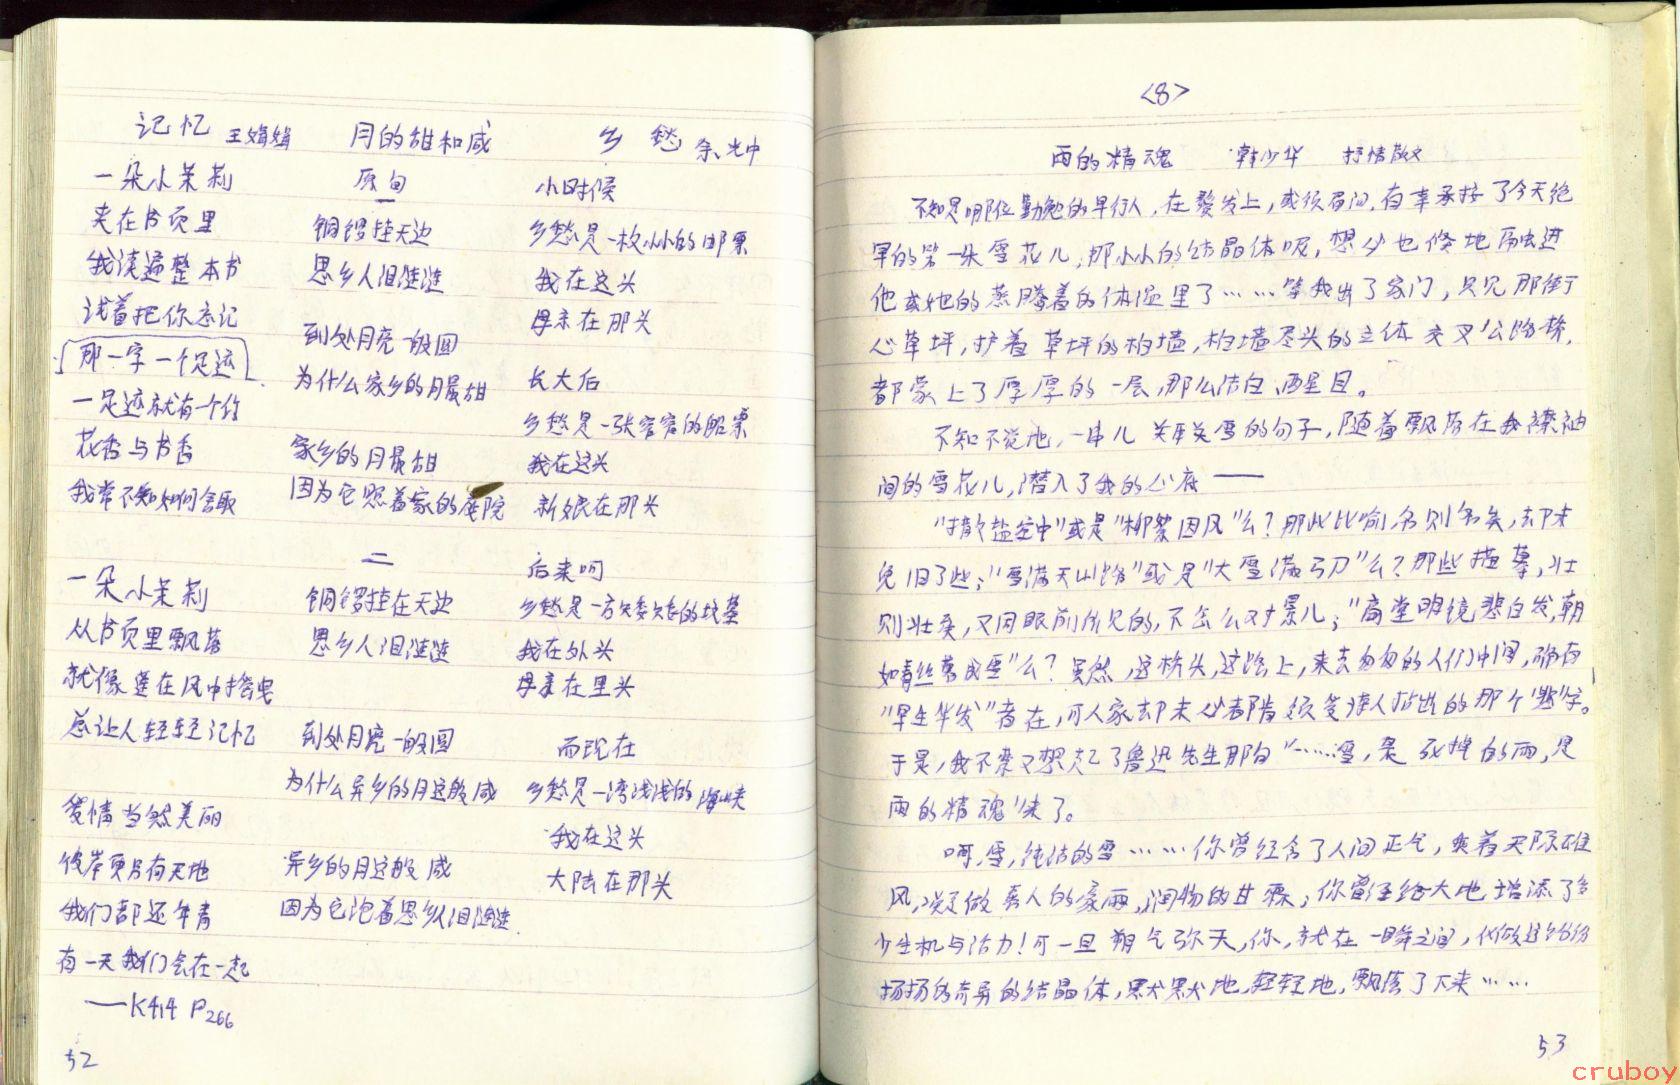 记忆 王娟娟
一朵小茉莉
夹在书页里
我读遍整本书
试着把你忘记
那一字一个足迹
一足迹就有一个你
花香与书香
我常不知如何舍取
一朵小茉莉
从书页里飘落
就像莲在风中摇曳
总让人轻轻记忆
爱情当然美丽
彼岸更另有天地
我们都还年青
有一天我们会在一起
——K414 P266
52
月的甜和咸
原甸
一
铜锣挂天边
思乡人泪涟涟
到处月亮一般圆
为什么家乡的月最甜
家乡的月最甜
因为它照着家的庭院
二
铜锣挂在天边
思乡人泪涟涟
到处月亮一般圆
为什么异乡的月这般咸
异乡的月这般咸
因为它泡着思乡人泪涟涟
乡愁 余光中
小时候
乡愁是一枚小小的邮票
我在这头
母亲在那头
长大后
乡愁是一张窄窄的船票
我在这头
新娘在那头
后来呵
乡愁是一方矮矮的坟墓
我在外头
母亲在里头
而现在
乡愁是一湾浅浅的海峡
我在这头
大陆在那头
<8>
雨的精魂 韩少华 抒情散文
不知是哪位勤勉的早行人,在鬓发上,或须眉间,有幸承接了今天绝
早的第一朵雪花儿;那小小的结晶体呢,想必也倏地融进
他或她的蒸腾着的体温里了……等我出了家门,只见那街
心草坪,护着草坪的柏墙,柏墙尽头的立体交叉公路桥,
都蒙上了厚厚的一层,那么洁白、洒星目。
不知不觉地,一串儿关于雪的句子,随着飘落在我襟袖
间的雪花儿,潜入了我的心底——
“撒盐空中”或是“柳絮因风”么?那些比喻,名则名矣,却未
免旧了些;“雪满天山路”或是“大雪满弓刀”么?那些描摹,壮
则壮矣,又同眼前所见的,不怎么对景儿;“高堂明镜悲白发,朝
如青丝暮成雪”么?虽然,这桥头,这路上,来去匆匆的人们中间,确有
“早生华发”者在,可人家却未必都肯领受诗人拈出的那个“悲”字。
于是,我不禁又想起了鲁迅先生那句“……雪,是死掉的雨,是
雨的精魂”来了。
呵,雪,纯洁的雪……你曾经含了人间正气,乘着天际雄
风,凝做喜人的豪雨,润物的甘霖;你曾经给大地增添了多
少生机与活力!可一旦朔气弥天,你,就在一瞬之间,化做这纷纷
扬扬的奇异的结晶体,默默地,轻轻地,飘落了下来……
53
cruboy